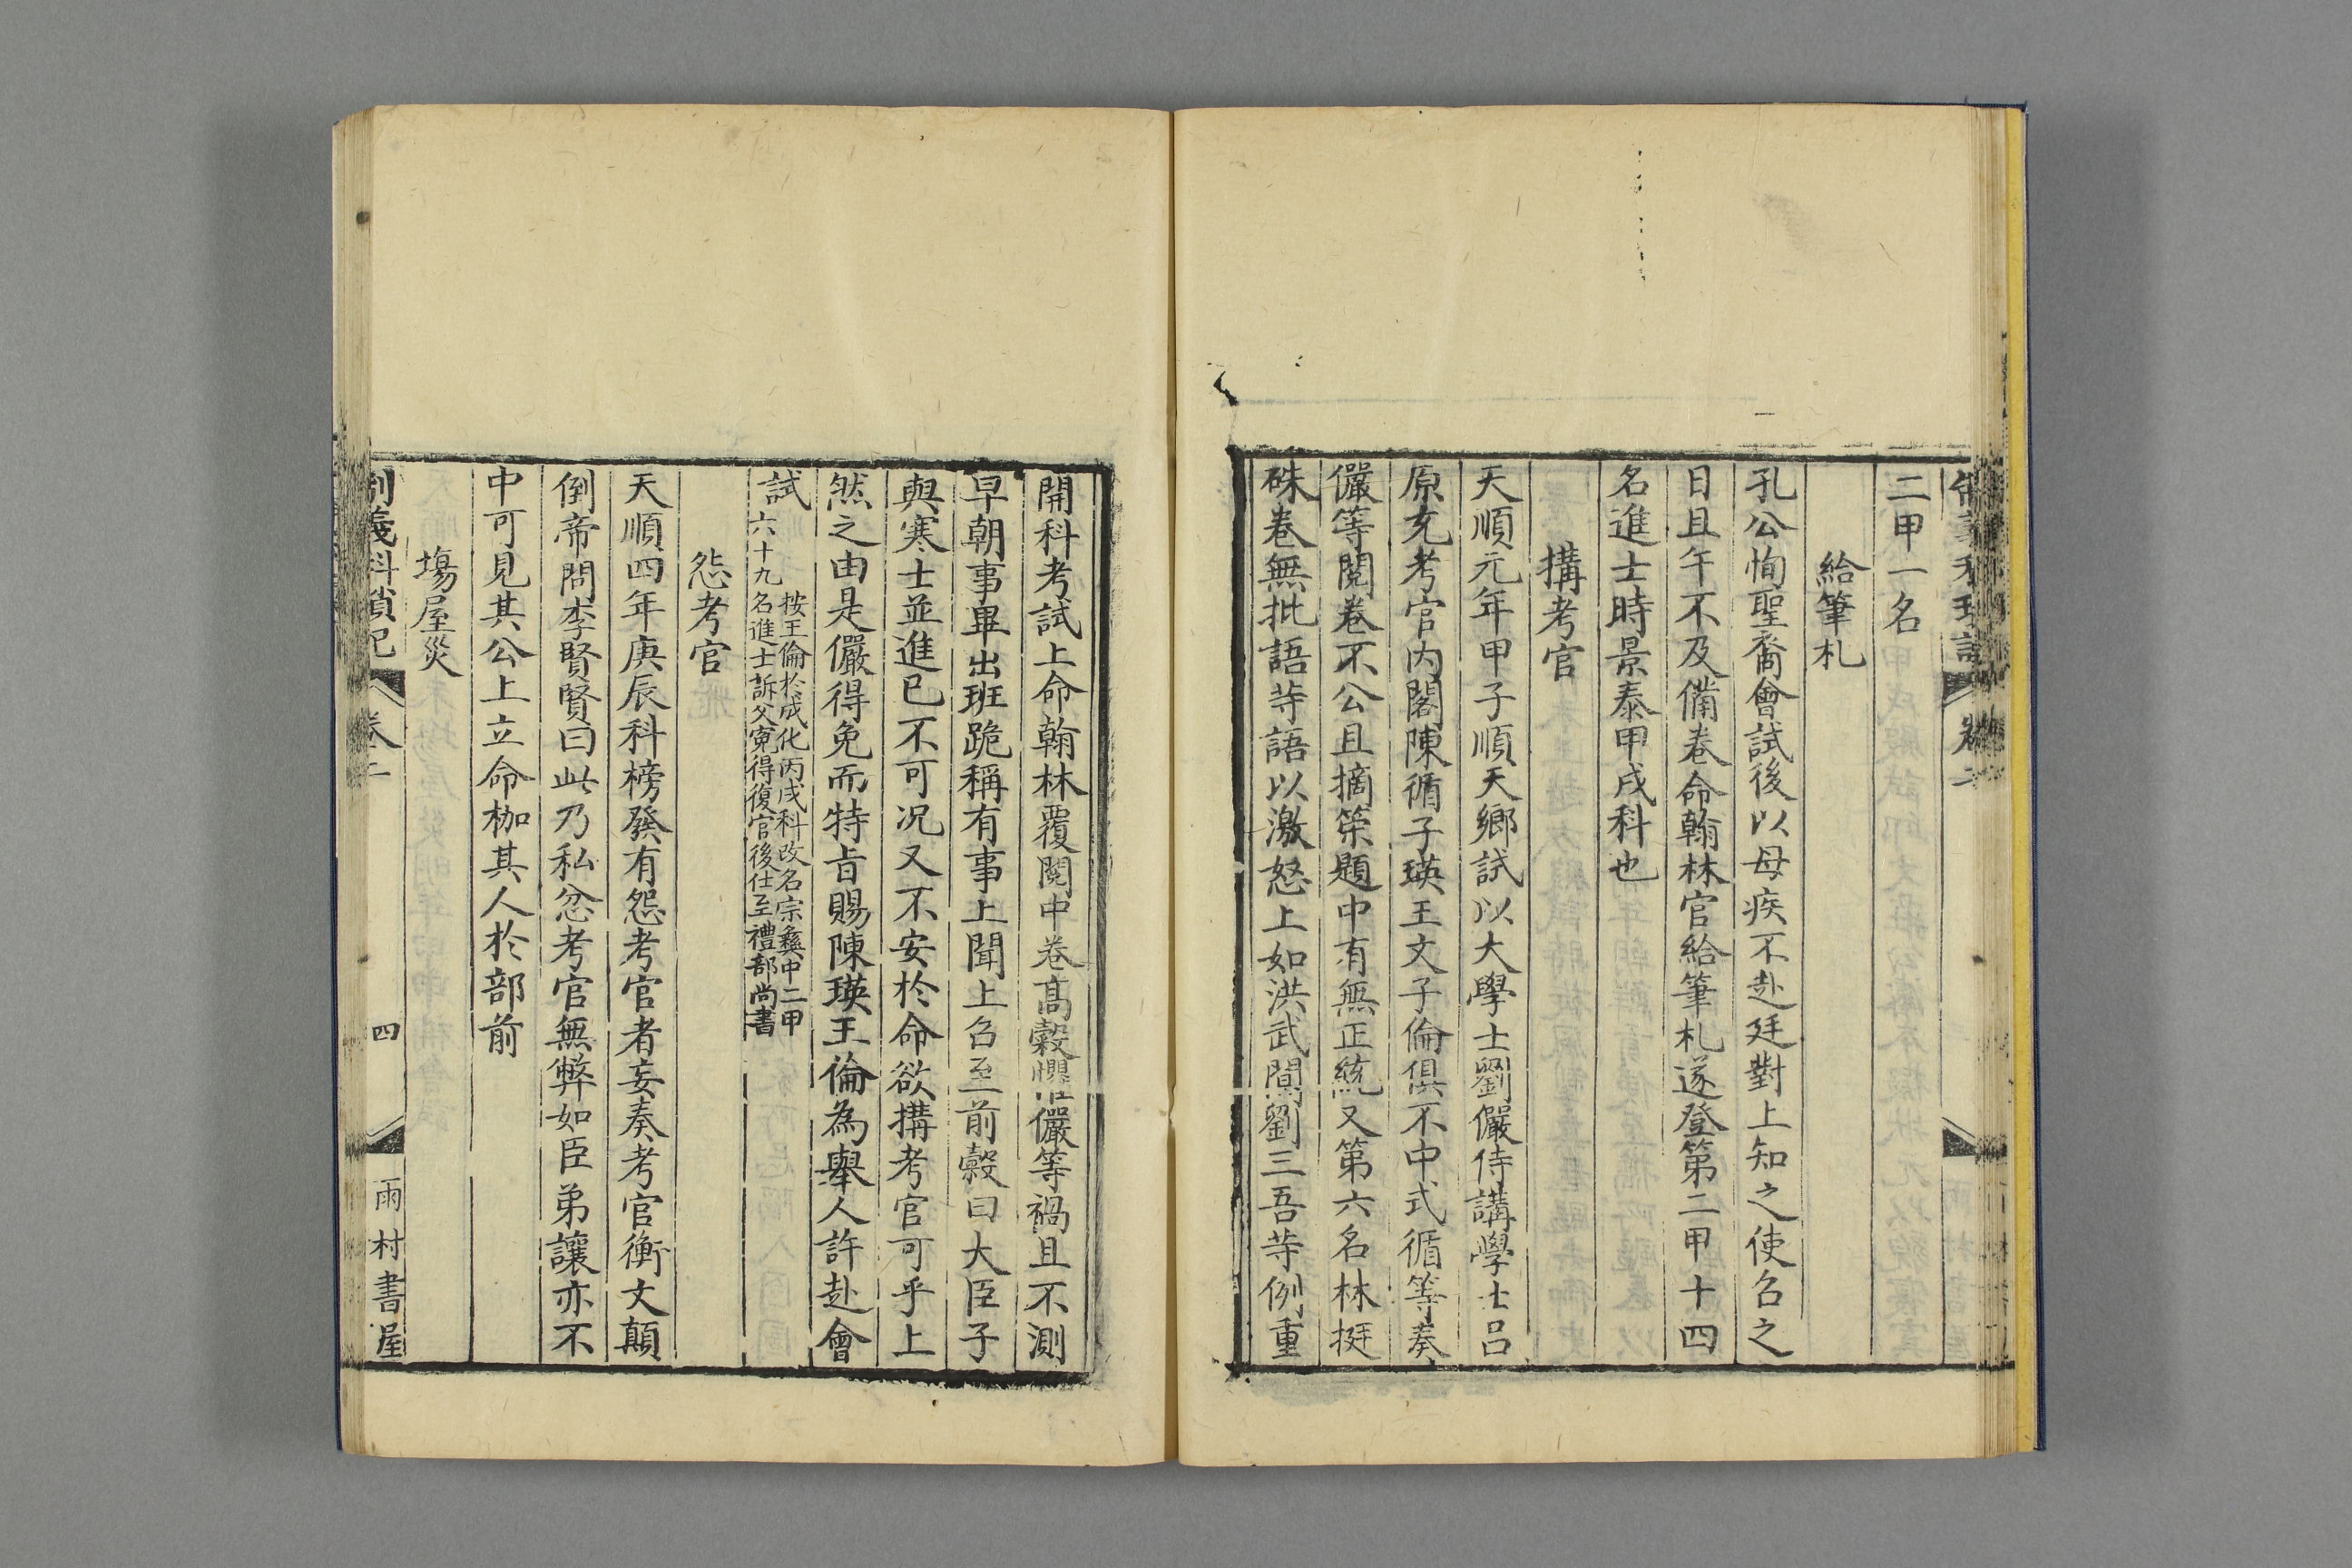 二甲一名
給筆札
孔公恂聖裔會試後以母疾不赴廷對上知之使召之
日且午不及備卷命翰林官給筆札遂登第二甲十四
名進士時景泰甲戌科也
搆考官
天順元年甲子順天鄉試以大學士劉儼侍講學士呂
原充考官内閣陳循子瑛王文子倫俱不中式循等奏
儼等閱卷不公且摘策題中有無正統又第六名林挺
硃卷無批語等語以激怒上如洪武間劉三吾等例重
開科考試上命翰林覆閱中卷高榖懼儼等禍且不測
早朝事畢出班跪稱有事上聞上召至前榖曰大臣子
與寒士並進已不可况又不安於命欲搆考官可乎上
然之由是儼得免而特旨賜陳瑛王倫為舉人許赴會
試按王倫於成化丙戌科改名宗彝中二甲
六十九名進士訴父寃得復官後仕至禮部尚書
怨考官
天順四年庚辰科榜發有怨考官者妄奏考官衡文顛
倒帝問李賢賢曰此乃私忿考官無弊如臣弟讓亦不
中可見其公上立命枷其人於部前
塲屋災
制義科瑣記 卷二 四 雨村書屋